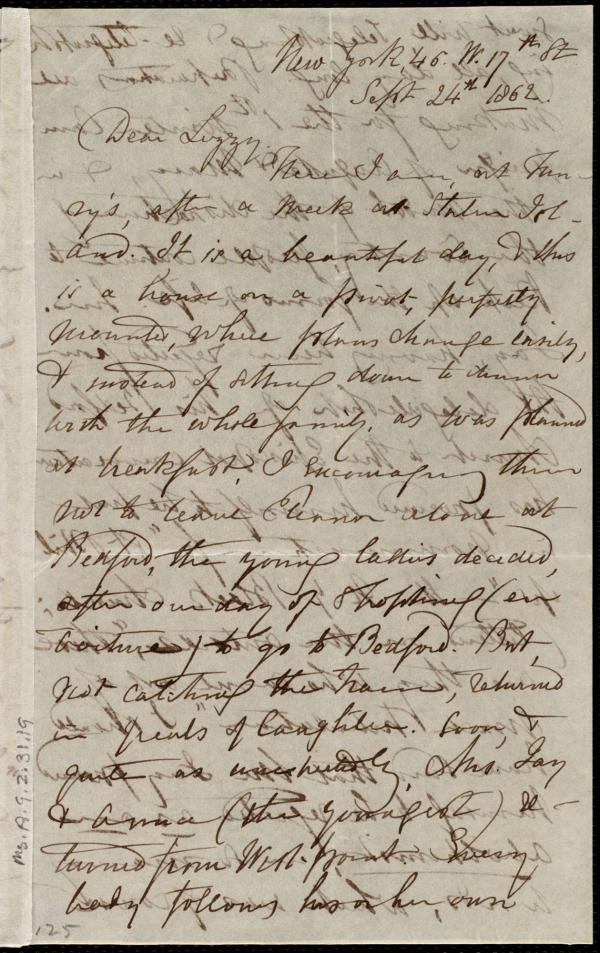 New York, 46. W. 17th St
Sept 24th 1862.
Dear Lizzy,
Here I am, at Fan-
ny's, after a week at Staten Isl-
and. It is a beautiful day, & this
is a house on a pivot, perfectly
mounted, where plans change easily,
& instead of sitting down to dinner
with the whole family, as was planned
at breakfast, I encouraging them
not to leave Eleanor alone at
Bedford, the young ladies decided,
after one day of shopping (en
voiture) to go to Bedford. But,
not catching the train, returned
in "peals" of laughter. Soon, &
quite as unexpectedly, Mrs. Jay
& Anna (the youngest) re-
turned from West-point. Every
body follows his or her, own
Ms. A.9.2.31.19
125